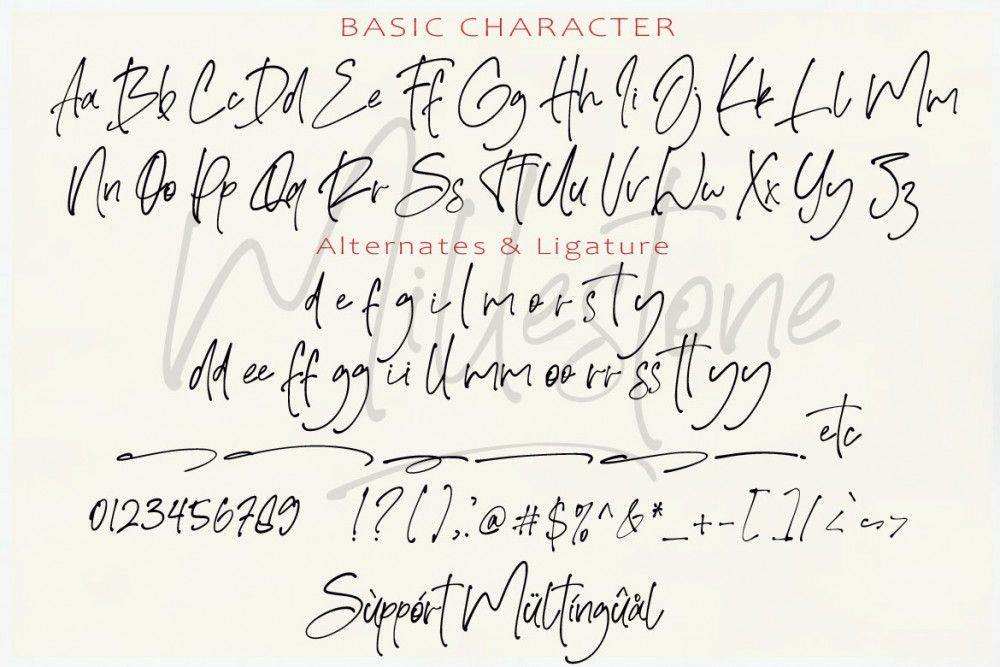 BASIC CHARACTER
Aa Bb Cc Dd Ee Ff Gg Hh Ii Jj Kk Ll Mm
Nn Oo Pp Qq Rr Ss Tt Uu Vv Ww Xx Yy Zz
Millestone
Alternates & Ligature
d e f g i l m o r s t y
dd ee ff gg ii ll mm oo rr ss tt yy
etc
0123456789 !?(),:'@#$%^&*_+-[]\/<`=>
Sùppórt Mültíngûål